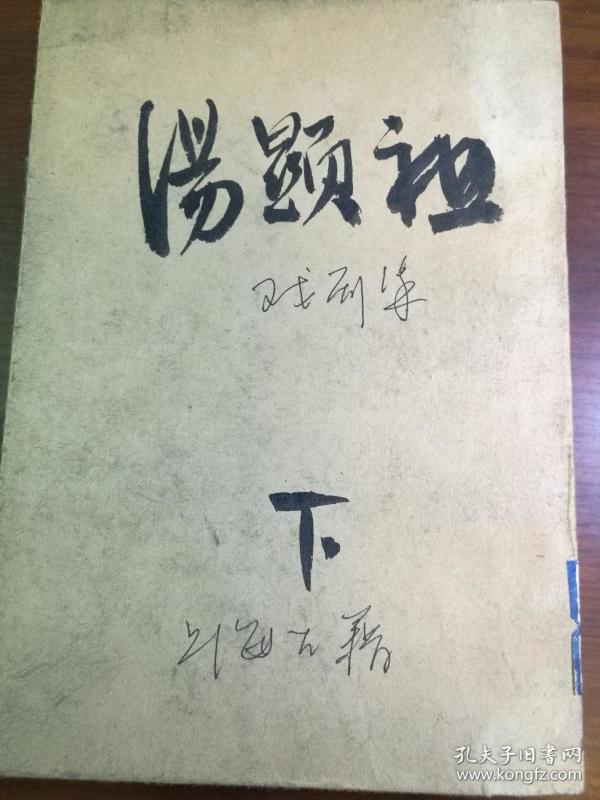 湯顯祖
戏剧集
下
上海古籍
孔夫子旧书网
www.kongfz.com